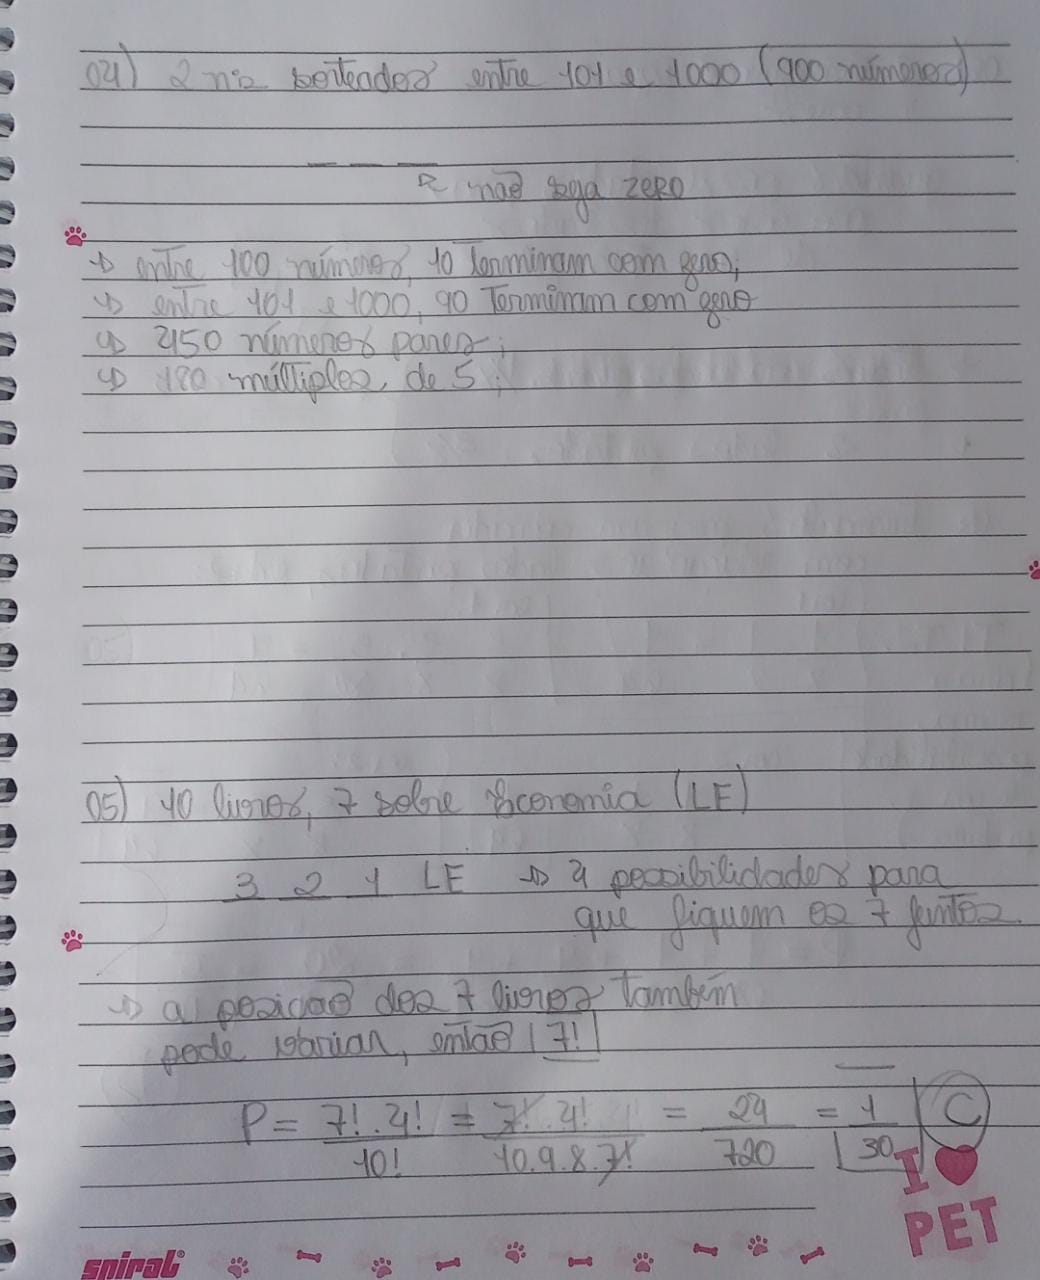 04) 2 nºs sorteados entre 101 e 1000 (900 números)
não seja ZERO
→ entre 100 números, 10 terminam com zero;
→ entre 101 e 1000, 90 Terminam com zero
→ 450 números pares;
→ 180 múltiplos de 5;
05) 10 livros, 7 sobre Economia (LE)
3 2 1 LE → 4 possibilidades para
que fiquem os 7 juntos.
→ a posição dos 7 livros também
pode variar, então 7!
P = 7! . 4! / 10! = 7! . 4! / 10.9.8.7! = 24 / 720 = 1 / 30 C
I ♥ PET
spiral®